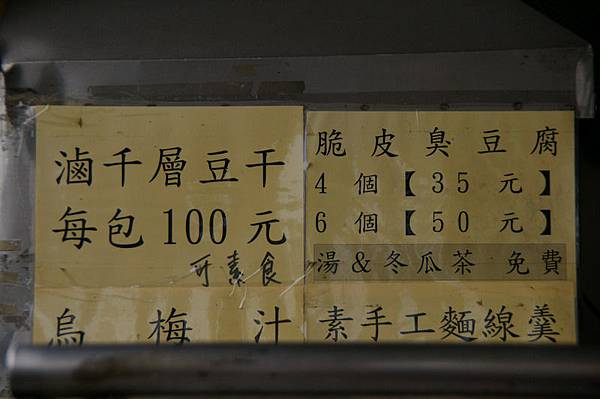 滷千層豆干
每包100元
可素食
烏梅汁
脆皮臭豆腐
4個【35元】
6個【50元】
湯&冬瓜茶 免費
素手工麵線羹